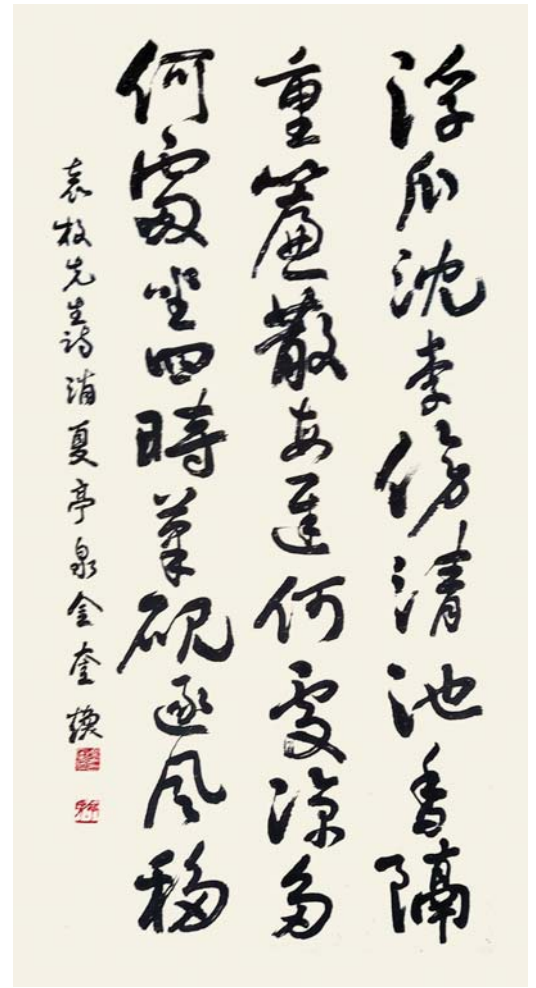 浮瓜沈李傍清池香隔
重簾散每遲何處涼多
何處坐四時筆硯逐風移
袁枚先生詩消夏亭泉金奎